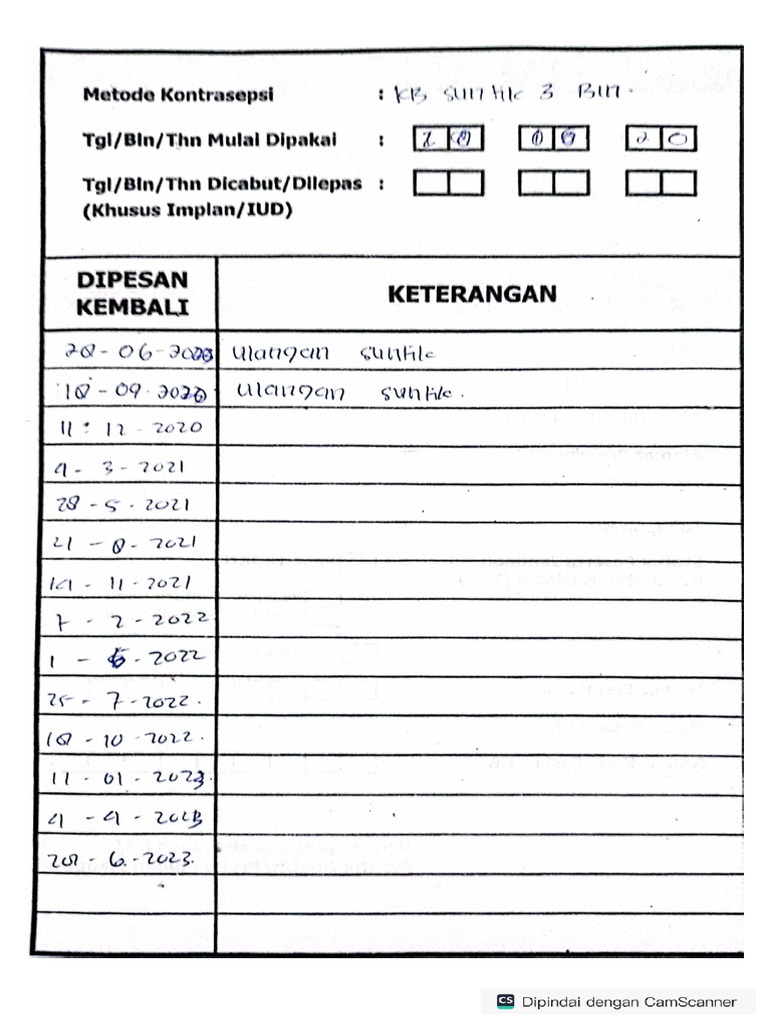 Metode Kontrasepsi : KB suntik 3 Bln.
Tgl/Bln/Thn Mulai Dipakai : 28 20
Tgl/Bln/Thn Dicabut/Dilepas :
(Khusus Implan/IUD)
DIPESAN KEMBALI KETERANGAN
28 - 06 - 2020 ulangan suntik
18 - 09 - 2020 ulangan suntik.
11 - 12 - 2020
4 - 3 - 2021
28 - 5 - 2021
21 - 8 - 2021
14 - 11 - 2021
7 - 2 - 2022
1 - 5 - 2022
25 - 7 - 2022.
18 - 10 - 2022.
11 - 01 - 2023.
4 - 4 - 2023
28 - 6 - 2023.
CS Dipindai dengan CamScanner